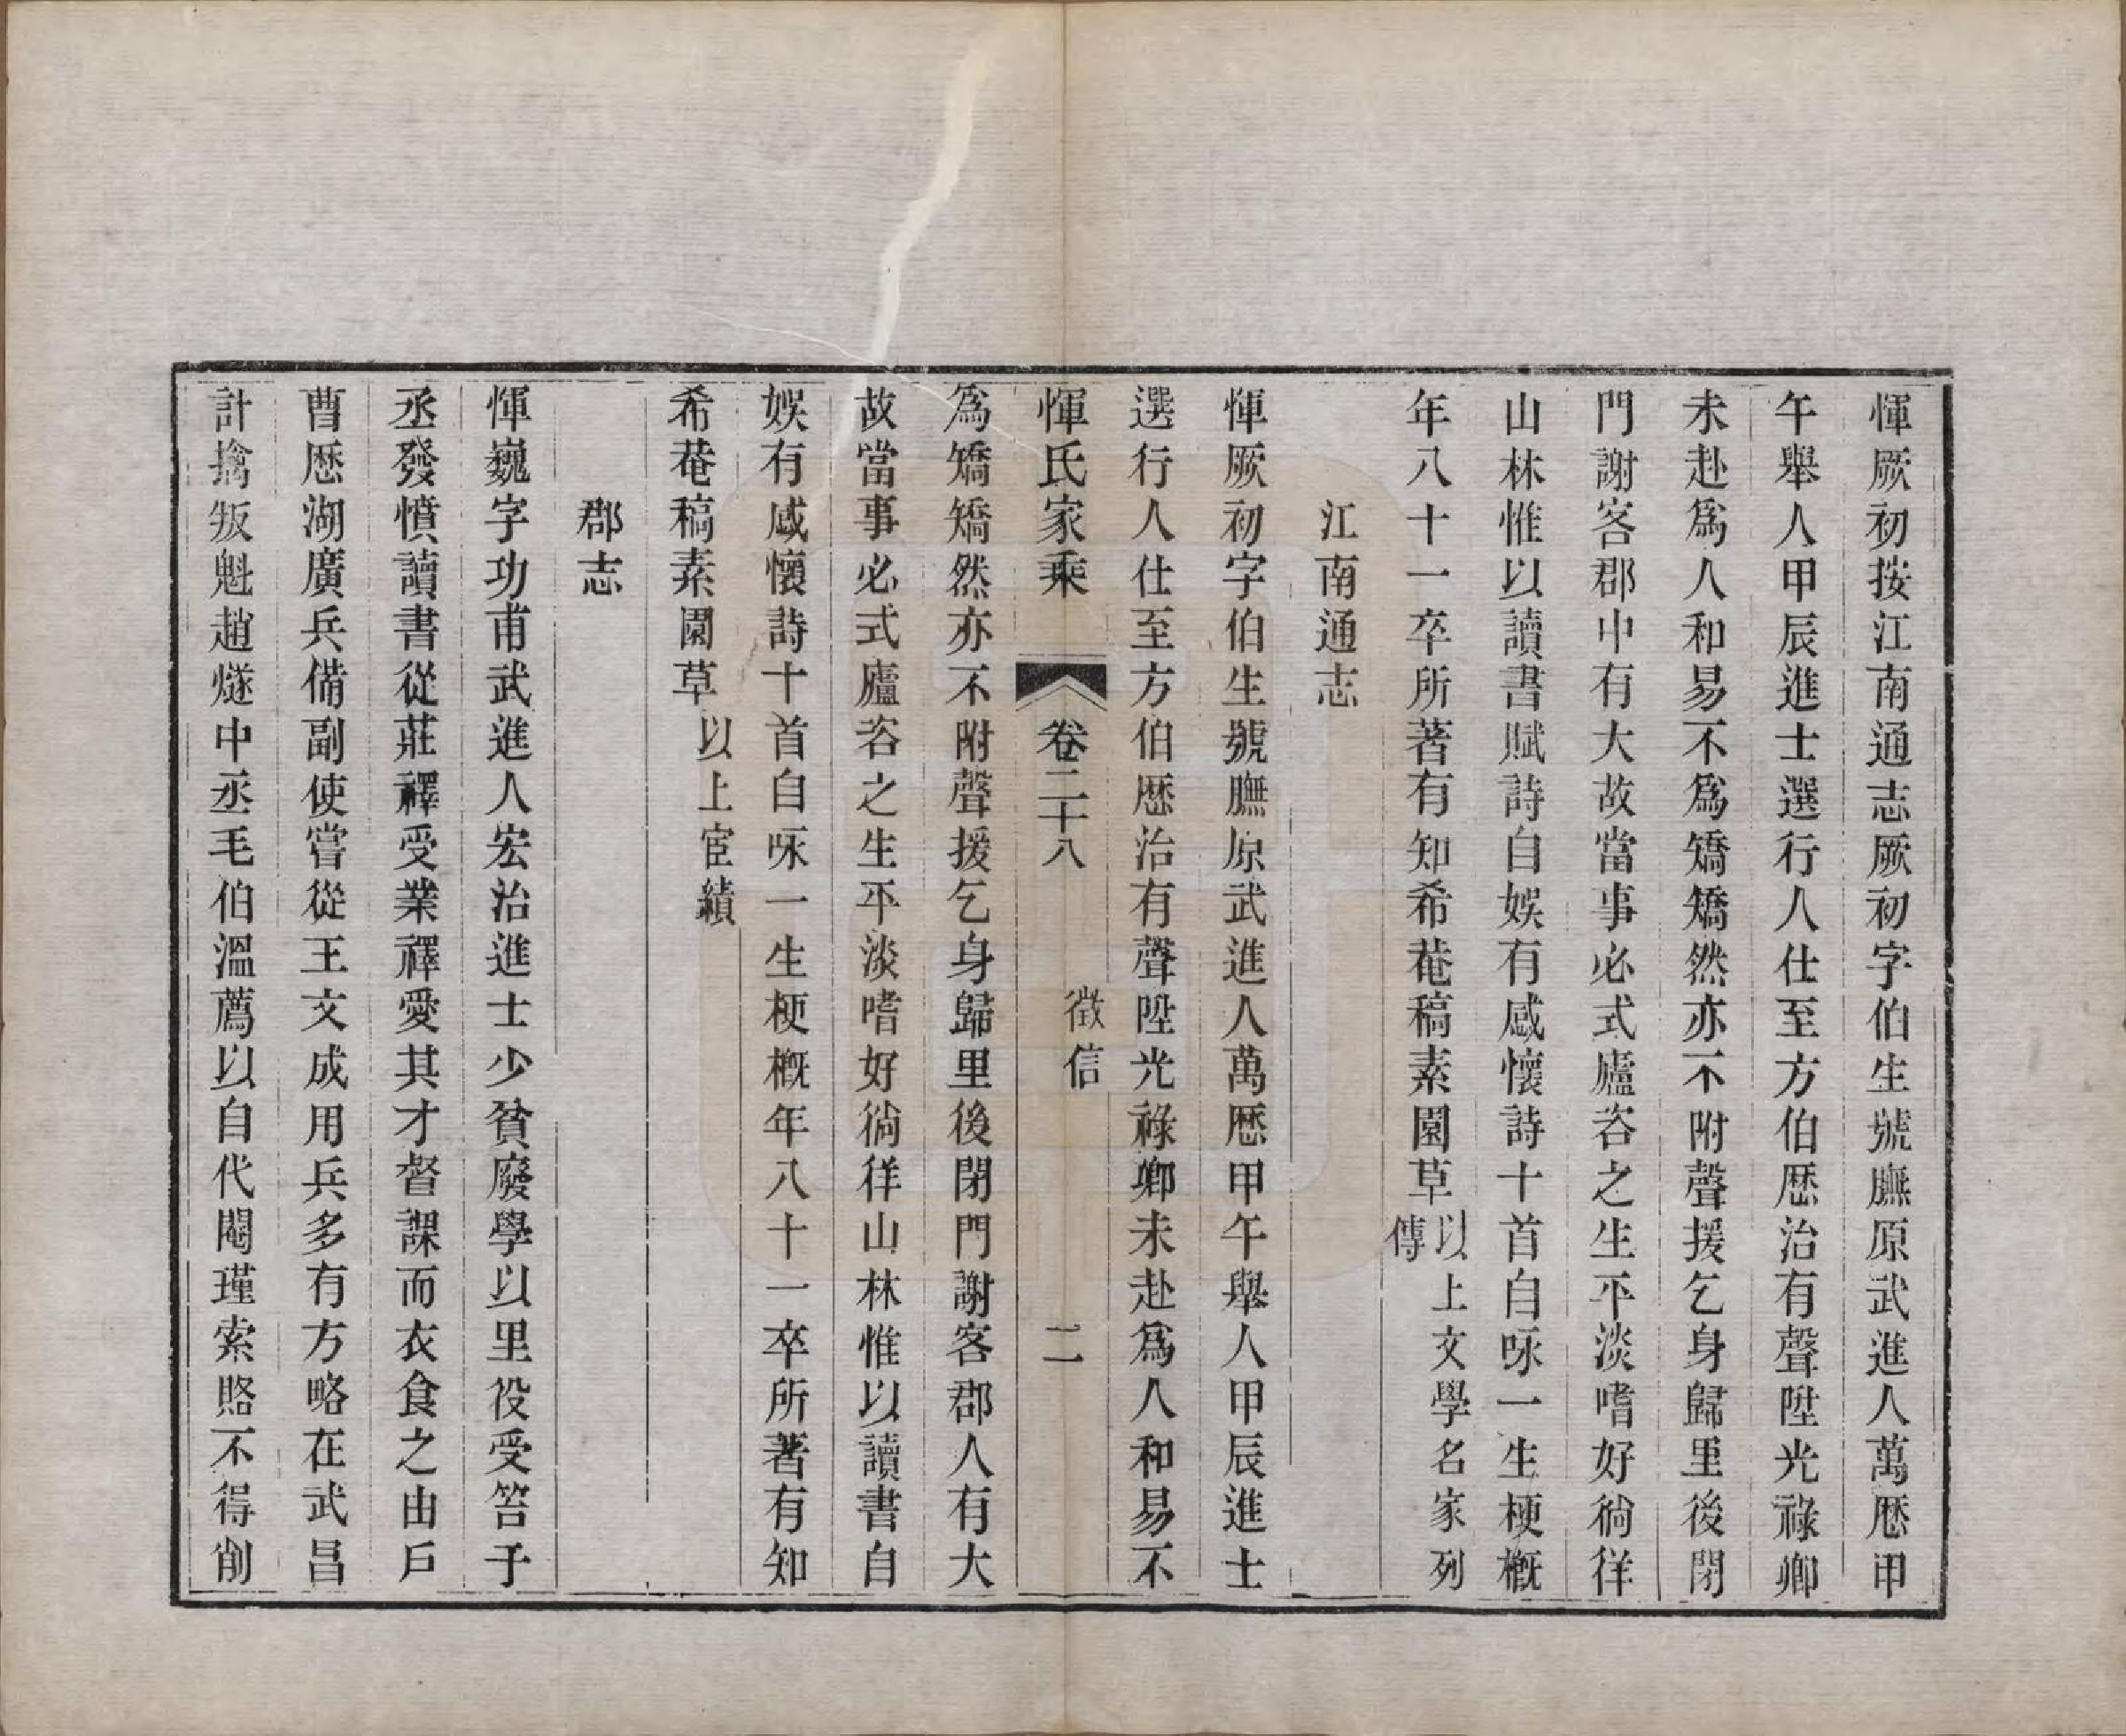 惲厥初按江南通志厥初字伯生號膴原武進人萬厯甲
午舉人甲辰進士選行人仕至方伯厯治有聲陞光祿卿
未赴爲人和易不爲矯矯然亦不附聲援乞身歸里後閉
門謝客郡中有大故當事必式廬咨之生平淡嗜好徜徉
山林惟以讀書賦詩自娛有感懷詩十首自咏一生梗概
年八十一卒所著有知希菴稿素園草以上文學名家列傳
江南通志
惲厥初字伯生號膴原武進人萬厯甲午舉人甲辰進士
選行人仕至方伯厯治有聲陞光祿卿未赴爲人和易不
惲氏家乘 卷二十八 徵信 二
爲矯矯然亦不附聲援乞身歸里後閉門謝客郡人有大
故當事必式廬咨之生平淡嗜好徜徉山林惟以讀書自
娛有感懷詩十首自咏一生梗概年八十一卒所著有知
希菴稿素園草以上宦績
郡志
惲巍字功甫武進人宏治進士少貧廢學以里役受笞于
丞發憤讀書從莊襗受業襗愛其才督課而衣食之由戶
曹厯湖廣兵備副使嘗從王文成用兵多有方略在武昌
計擒叛魁趙燧中丞毛伯溫薦以自代閹瑾索賂不得削